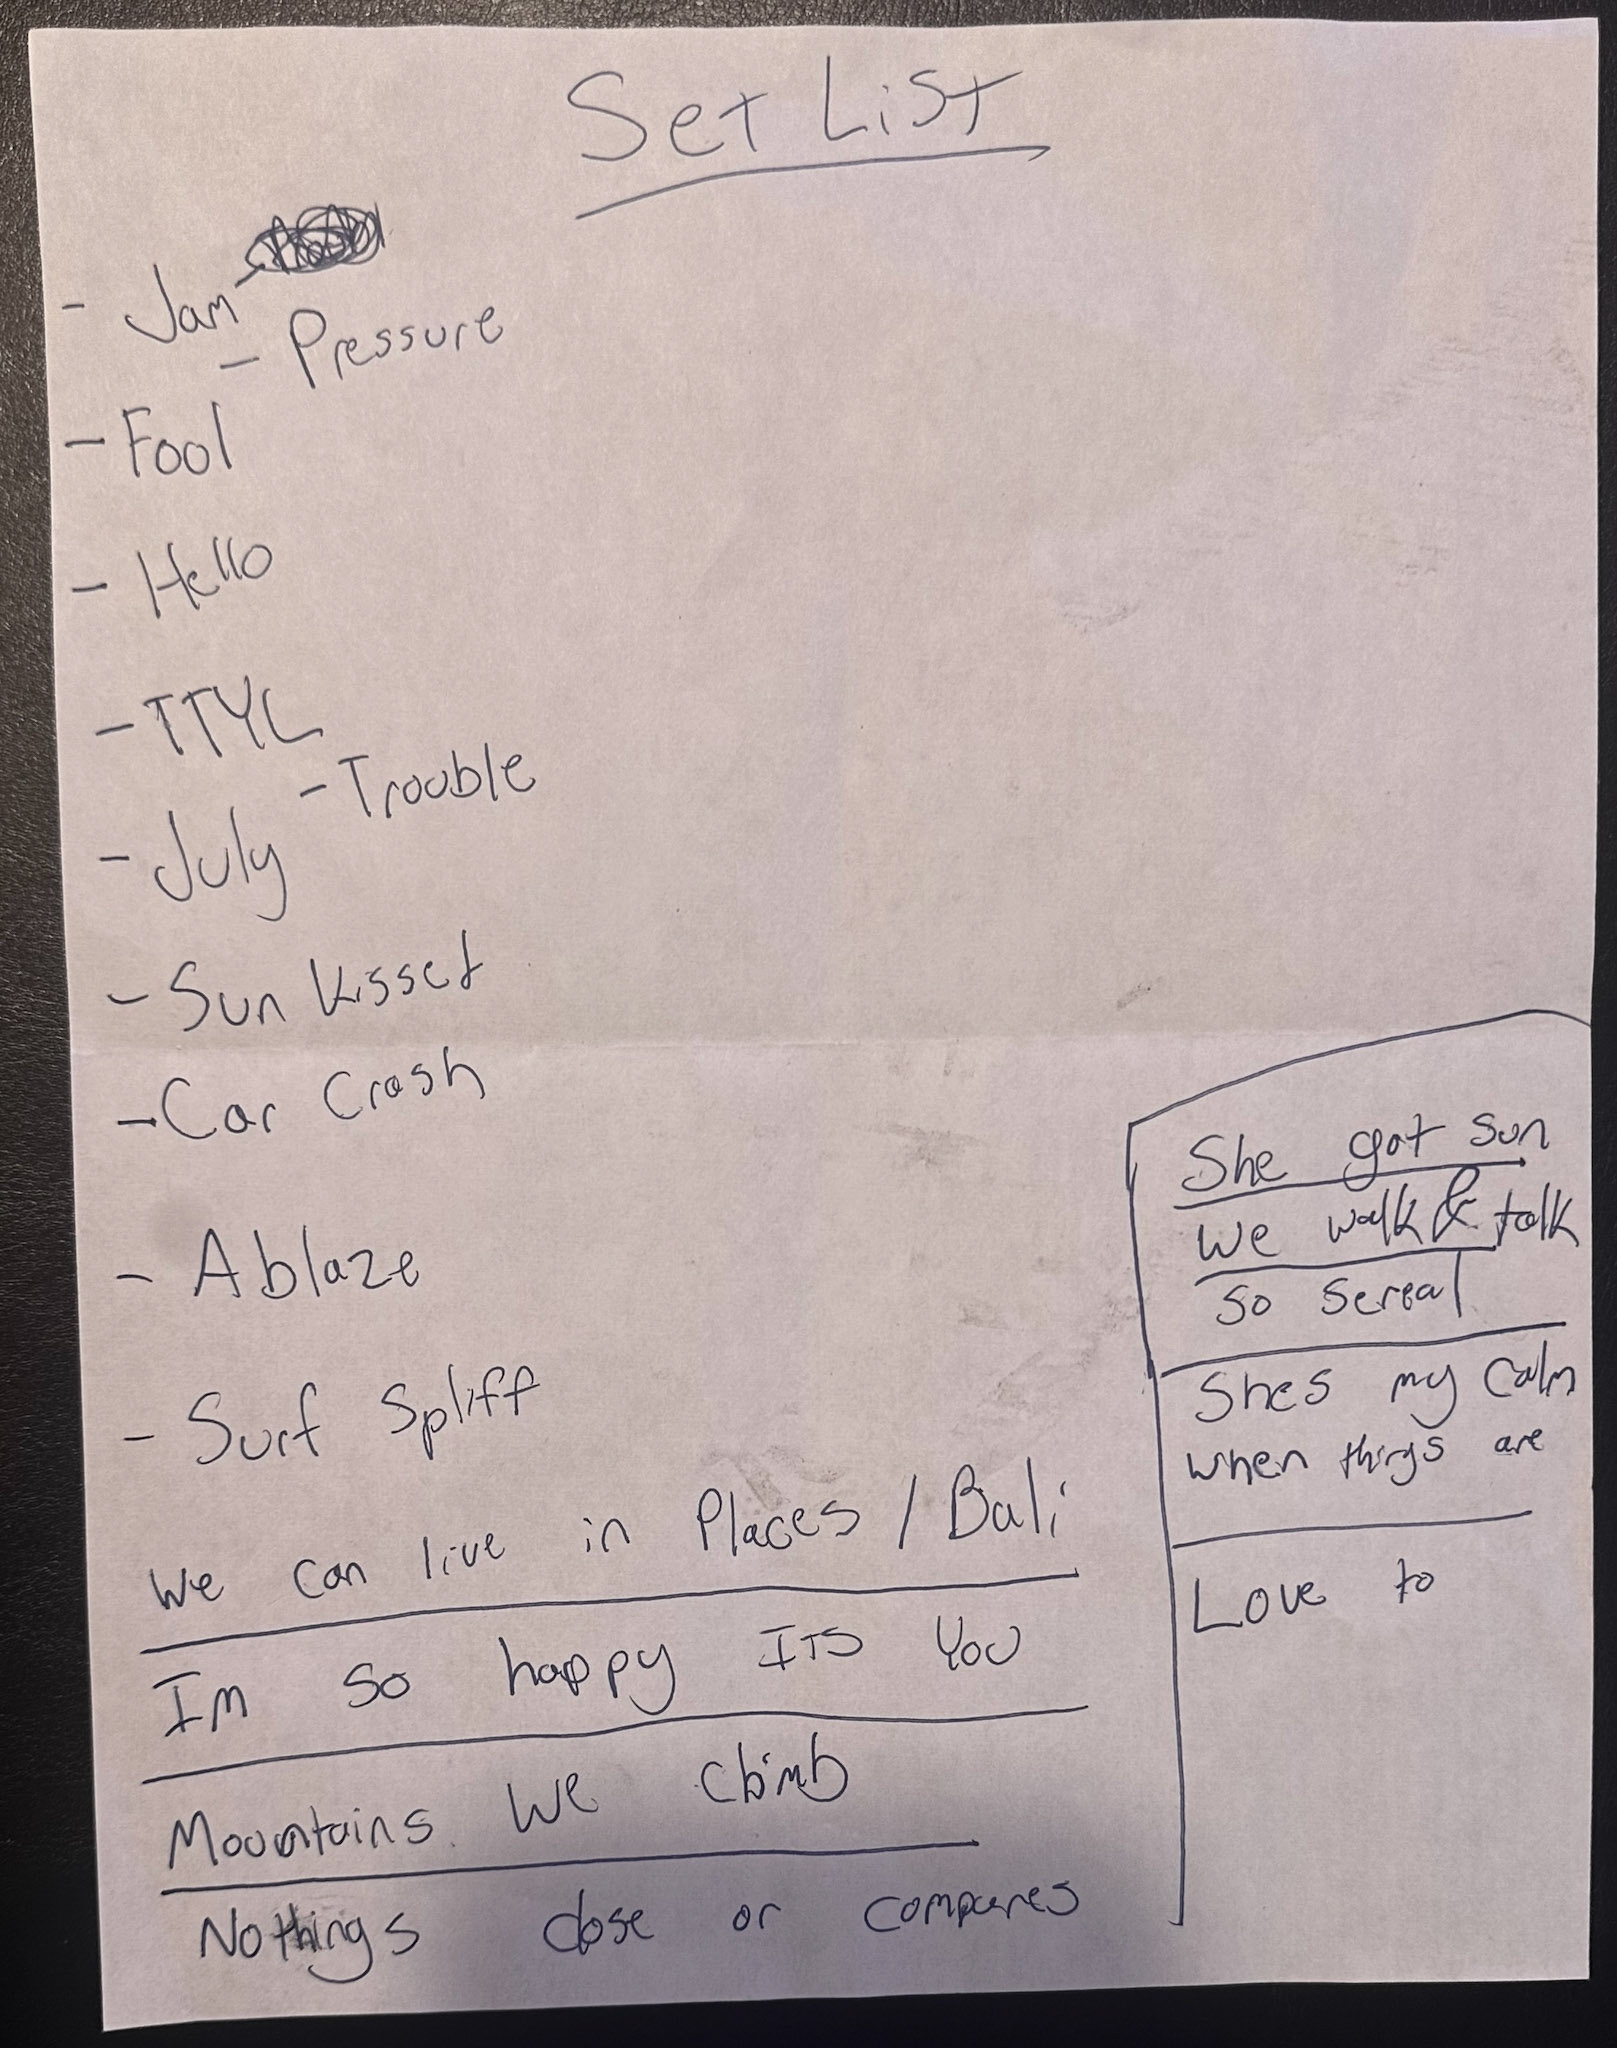 Set List
- Jam
- Pressure
- Fool
- Hello
- TTYL
- Trouble
- July
- Sun Kisset
- Car Crash
- Ablaze
- Surf Spliff
We can live in Places / Bali
Im so happy ITS You
Mountains we climb
Nothings close or compares
She got sun
we walk & talk
so sereal
Shes my calm
when things are
Love to